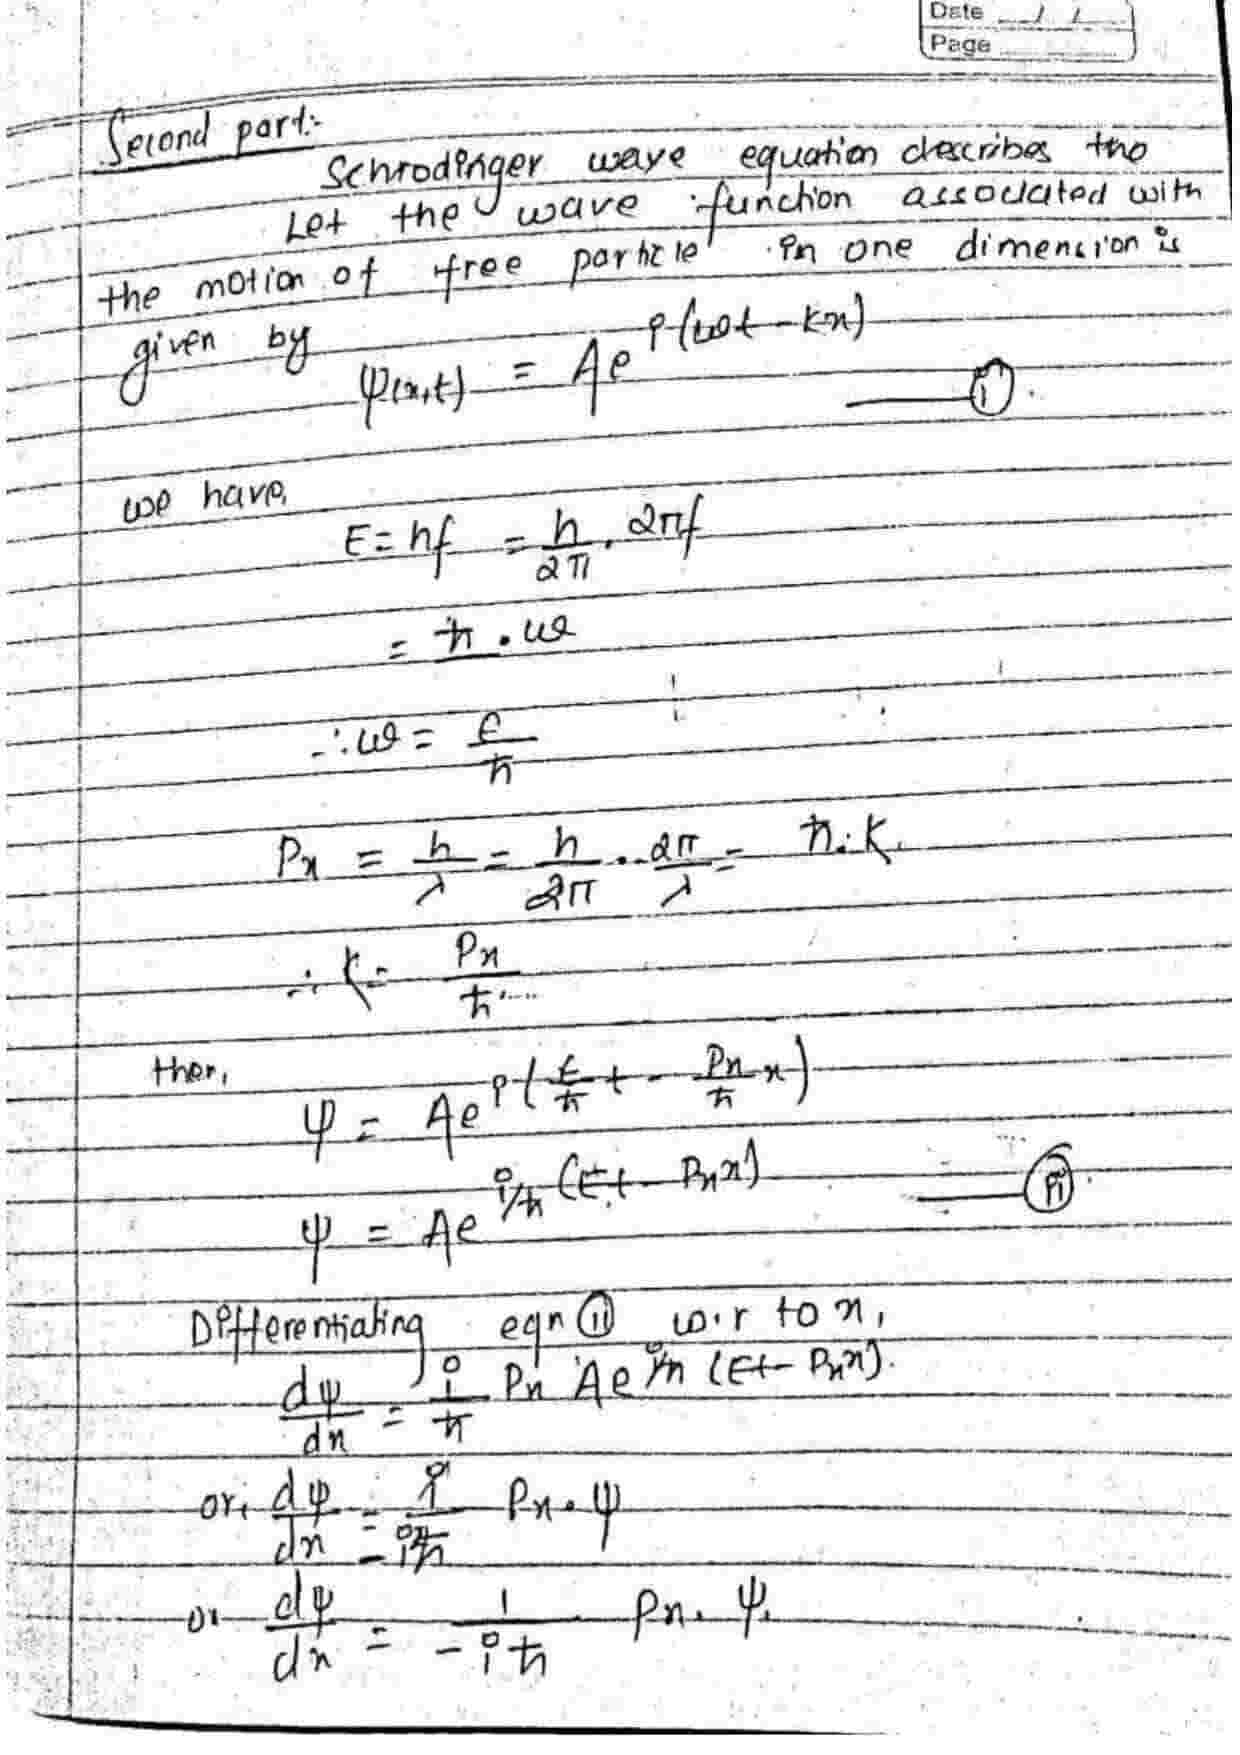 Date / /
Page
Second part:-
Schrodinger wave equation describes the
Let the wave function associated with
the motion of free particle in one dimension is
given by
ψ(x,t) = Ae^i(ωt - kx) ——— (i)
we have,
E = hf = h/2π . 2πf
= ħ . ω
∴ ω = E/ħ
Px = h/λ = h/2π . 2π/λ = ħ . K.
∴ K = Px/ħ
then,
ψ = Ae^i(E/ħ t - Px/ħ x)
ψ = Ae^i/ħ (Et - Px x) ——— (ii)
Differentiating eqn (ii) w.r to x,
dψ/dx = i/ħ Px Ae^i/ħ (Et - Px x).
or, dψ/dx = i/-iħ Px . ψ
or dψ/dx = 1/-iħ Px . ψ.